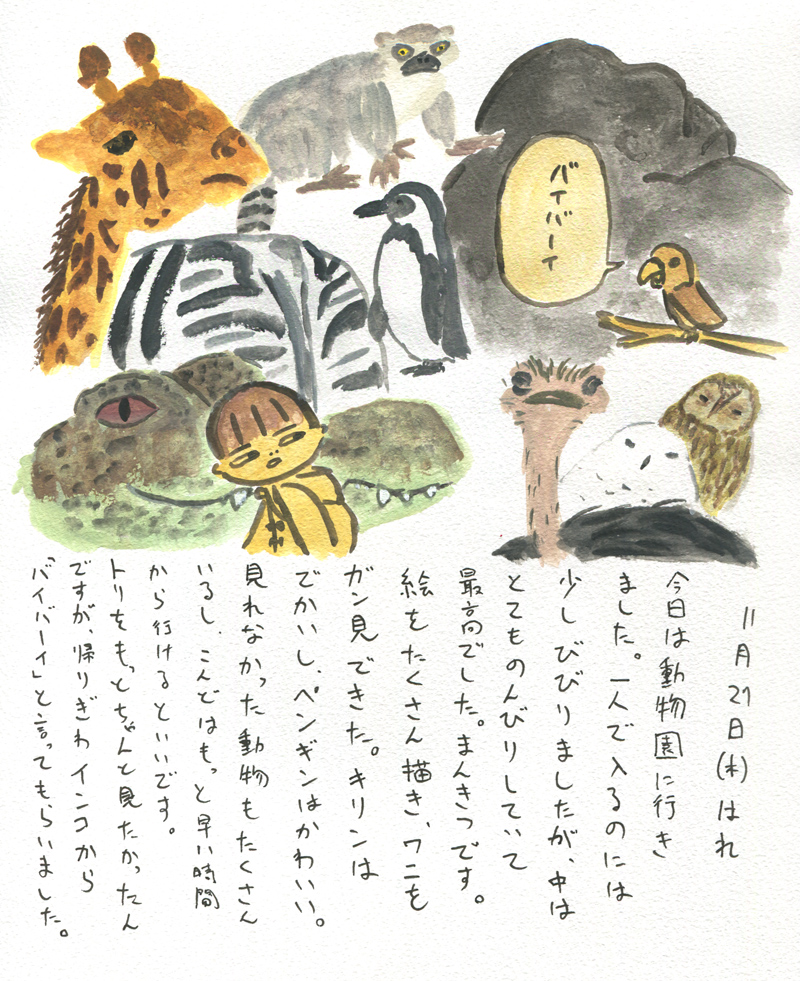 バイバーイ
11月21日(木)はれ
今日は動物園に行き
ました。一人で入るのには
少しびびりましたが、中は
とてものんびりしていて
最高でした。まんきつです。
絵をたくさん描き、ワニを
ガン見できた。キリンは
でかいし、ペンギンはかわいい。
見れなかった動物もたくさん
いるし、こんどはもっと早い時間
から行けるといいです。
トリをもっとちゃんと見たかったん
ですが、帰りぎわインコから
「バイバーイ」と言ってもらいました。